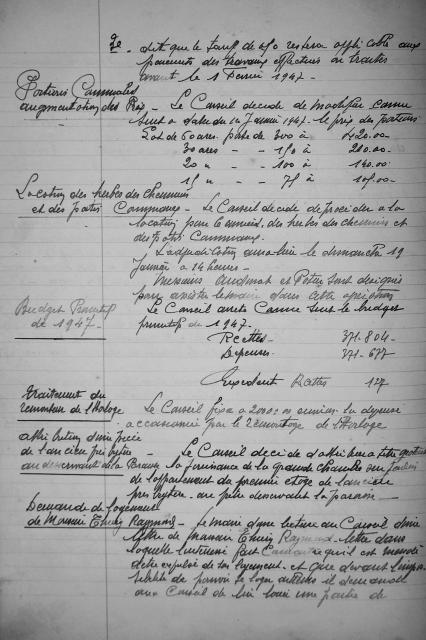 2e. dit que le tarif de 250 restera applicable aux
paiements des travaux effectués ou traités
avant le 1 Février 1947.
Portions Communales
augmentation des Prix. Le Conseil décide de modifier comme
suit à dater du 1 Janvier 1947 le prix des portions
Lot de 60 ares passe de 300 à 420.00
30 ares - - 150 à 210.00
20 " - - 100 à 140.00
15 " - - 75 à 105.00
Location des herbes des chemins
et des patis Communaux. Le Conseil décide de procéder à la
location pour l'année, des herbes des chemins et
des patis Communaux.
L'adjudication aura lieu le dimanche 19
Janvier à 14 heures.
Messieurs et sont désignés
pour assister le maire dans cette opération
Budget Primitif
de 1947.
Le Conseil arrête comme suit le budget
primitif de 1947.
Recettes. 371-804.
Dépenses. 371-677
Excédent Recettes 127
Traitement du
remonteur de l'Horloge
Le Conseil fixe à 2000 la dépense
occasionnée par le remontage de l'Horloge
attribution d'une pièce
de l'ancien presbytère
au desservant de la Paroisse
Le Conseil décide d'attribuer à titre gratuit
la jouissance de la grande chambre
de l'appartement du premier étage de l'ancien
presbytère, au prêtre desservant la paroisse.
Demande de logement
de Monsieur Raymond. Le maire donne lecture au Conseil d'une
lettre de Monsieur Raymond, lettre dans
laquelle l'intéressé fait connaître qu'il est menacé
d'être expulsé de son logement, et que devant l'impos
sibilité de pouvoir se loger il demande
au Conseil de lui louer une partie de